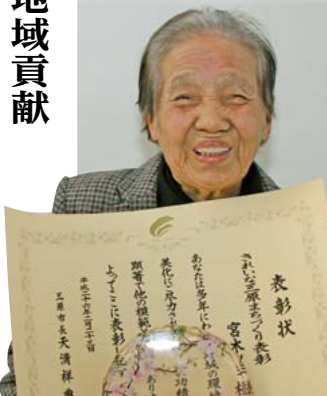 地域貢献
表彰状
きれいな三原まちづくり表彰
宮木
あなたは多年にわ
地域の環境
美化に尽力され
功績
顕著で他の模範
あり
よってここに表彰し
平成二十六年二月二十三日
三原市長 天満祥典